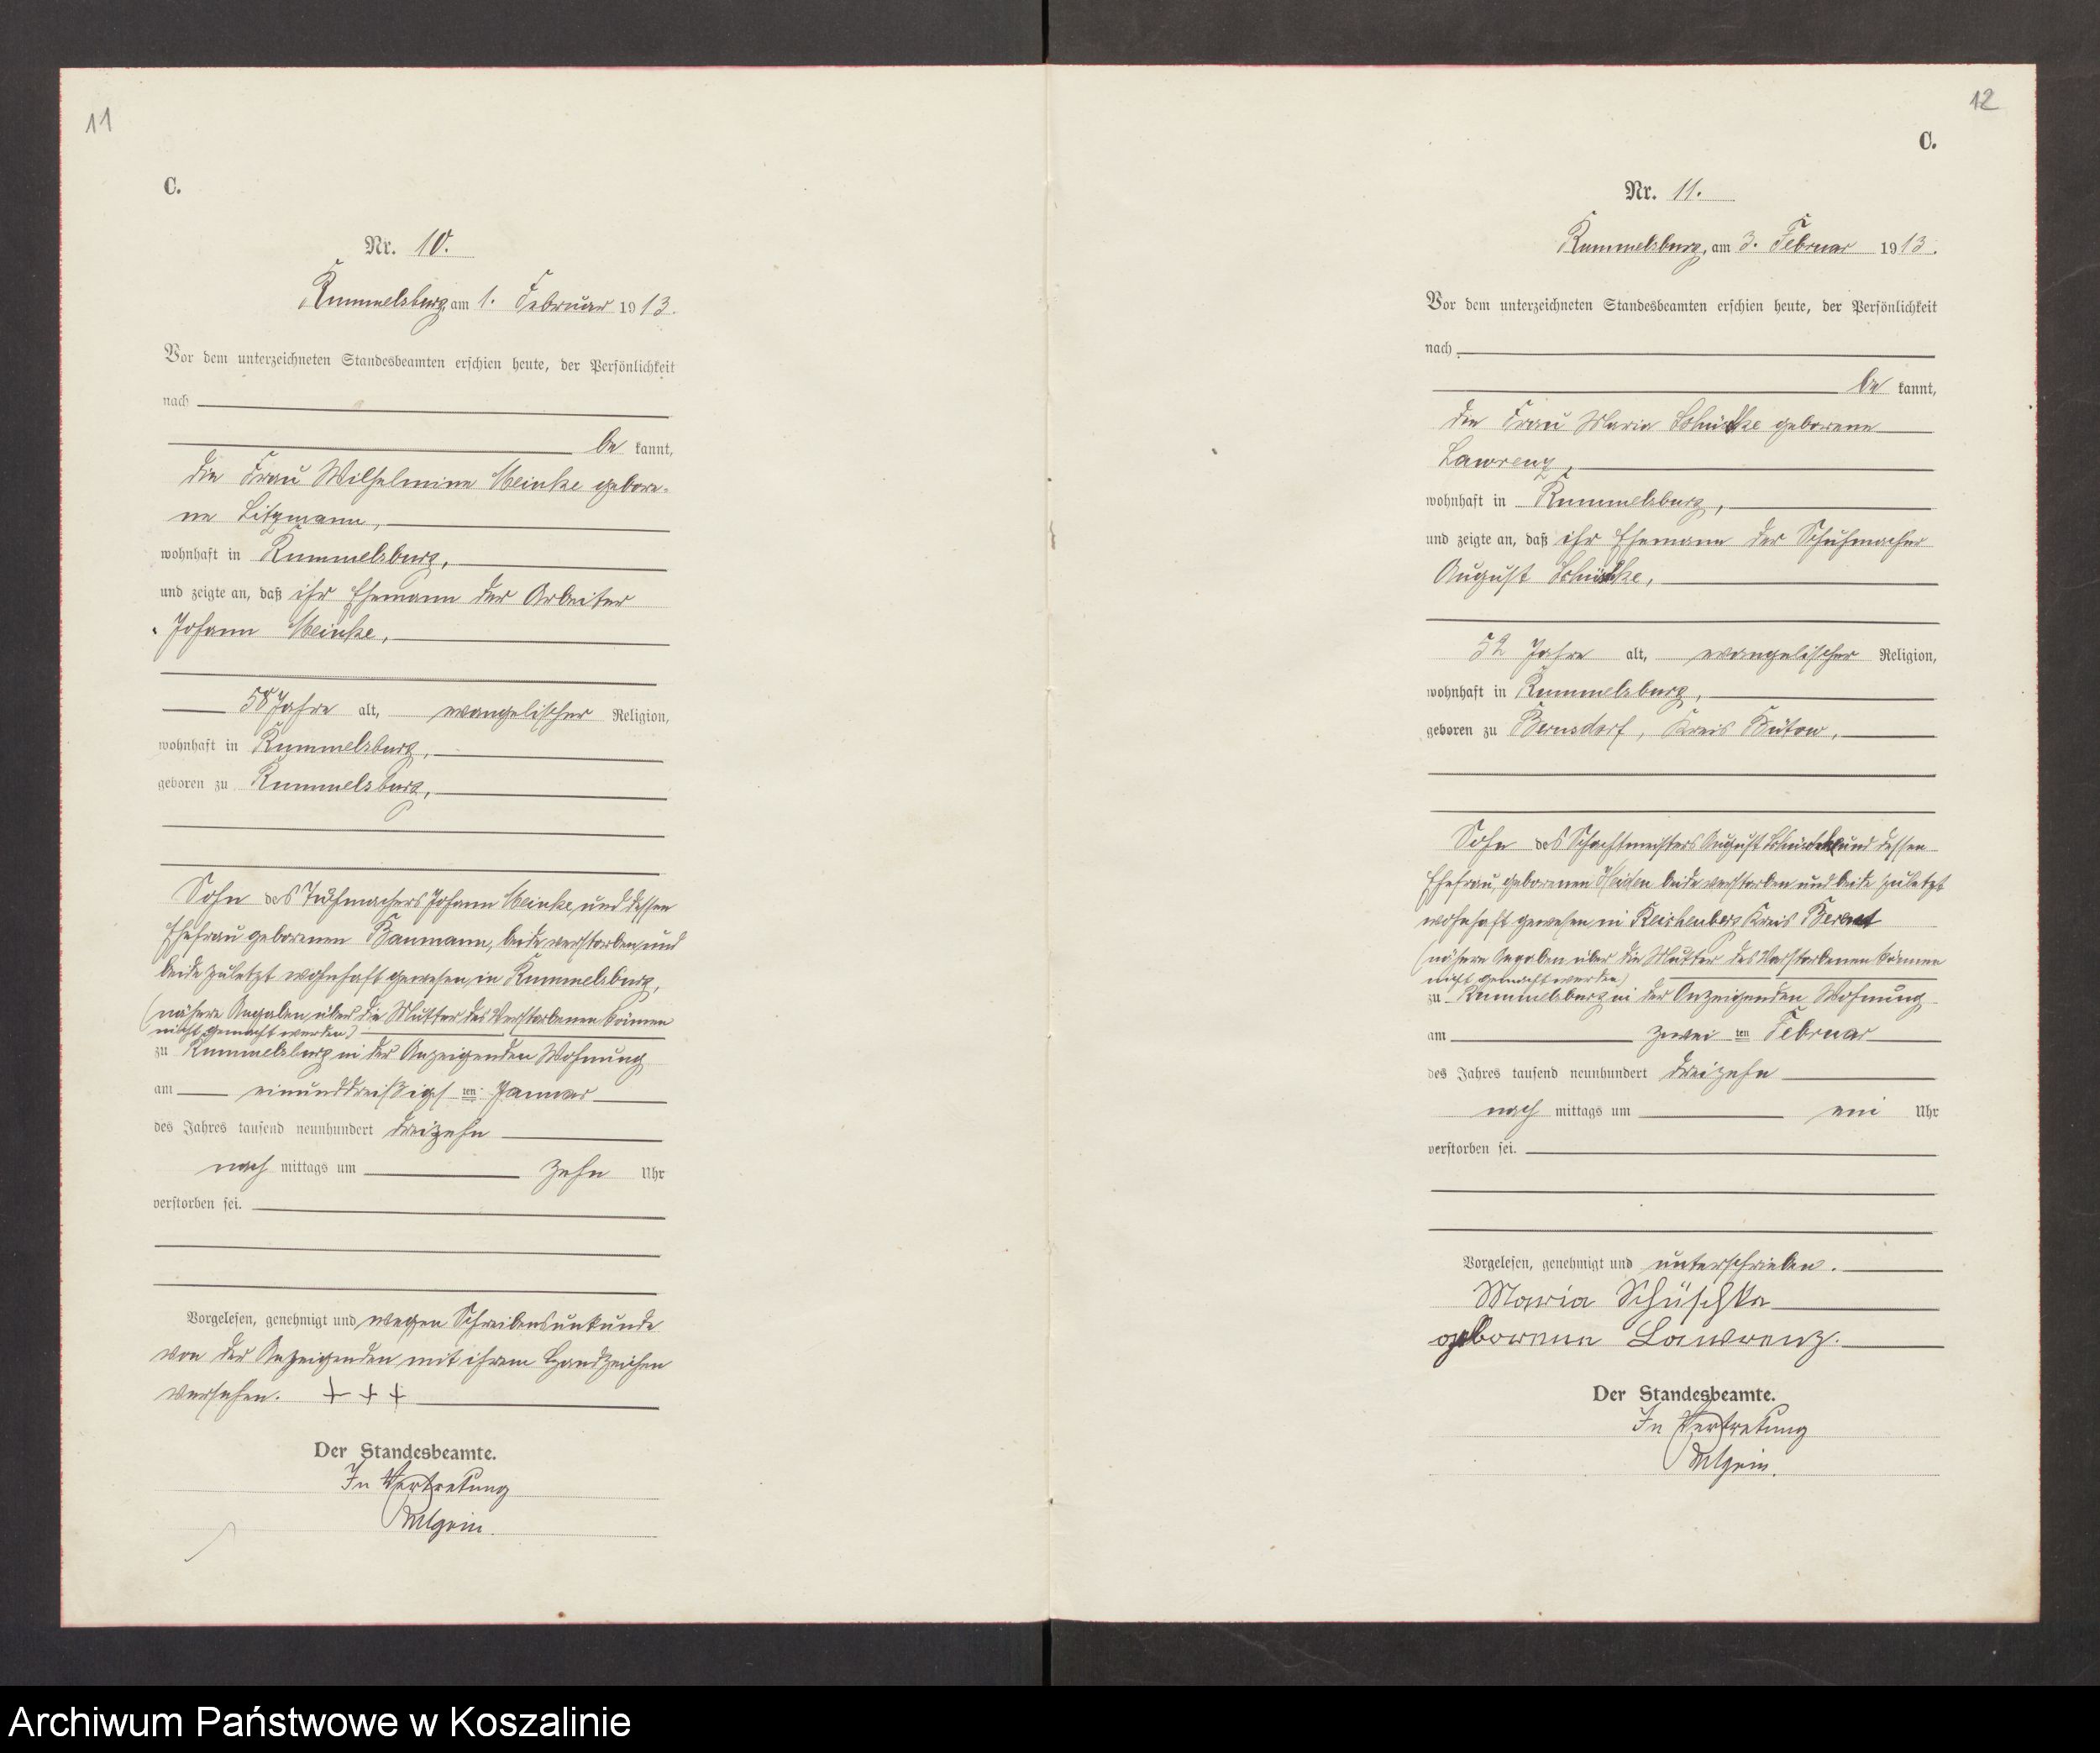 11
C.
Nr. 10.
Rummelsburg, am 1. Februar 1913.
Vor dem unterzeichneten Standesbeamten erschien heute, der Persönlichkeit
nach
be kannt,
die Frau Wilhelmine Meinke gebore-
ne Litzmann,
wohnhaft in Rummelsburg,
und zeigte an, daß ihr Ehemann der Arbeiter
Johann Meinke,
58 Jahre alt, evangelischer Religion,
wohnhaft in Rummelsburg,
geboren zu Rummelsburg,
Sohn des Tuchmachers Johann Meinke, und dessen
Ehefrau geborenen Baumann, beide verstorben, und
beide zuletzt wohnhaft gewesen, in Rummelsburg,
(nähere Angaben über die Mutter des Verstorbenen können
nicht gemacht werden)
zu Rummelsburg in der Anzeigenden Wohnung
am einunddreißigs ten Januar
des Jahres tausend neunhundert dreizehn
nach mittags um zehn Uhr
verstorben sei.
Vorgelesen, genehmigt und wegen Schreibensunkunde
von der Anzeigenden mit ihrem Handzeichen
versehen. + + +
Der Standesbeamte.
In Vertretung
12
C.
Nr. 11.
Rummelsburg, am 3. Februar 1913.
Vor dem unterzeichneten Standesbeamten erschien heute, der Persönlichkeit
nach
be kannt,
die Frau Maria geborene
Lawrenz,
wohnhaft in Rummelsburg,
und zeigte an, daß ihr Ehemann der Schuhmacher
August
52 Jahre alt, evangelischer Religion,
wohnhaft in Rummelsburg,
geboren zu Bernsdorf, Kreis Bütow,
Sohn des Schachtmeisters August und dessen
Ehefrau, geborenen beide verstorben und beide zuletzt
wohnhaft gewesen in Reichenberg Kreis Berent
(nähere Angaben über die Mutter des Verstorbenen können
nicht gemacht werden)
zu Rummelsburg in der Anzeigenden Wohnung
am zwei ten Februar
des Jahres tausend neunhundert dreizehn
nach mittags um ein Uhr
verstorben sei.
Vorgelesen, genehmigt und unterschrieben.
Maria Schüschke
geborene Lawrenz.
Der Standesbeamte.
In Vertretung
Archiwum Państwowe w Koszalinie